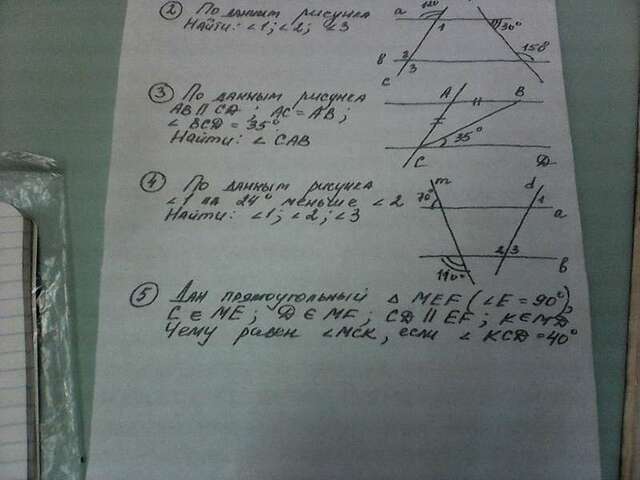 ② По данным рисунка
Найти: ∠1; ∠2; ∠3
a 120° 1 30°
в 2 3 150°
c
③ По данным рисунка
AB ∥ CD; AC = AB;
∠ BCD = 35°
Найти: ∠ CAB
A B
35°
C D
④ По данным рисунка
∠1 на 24° меньше ∠2
Найти: ∠1; ∠2; ∠3
m d
70° 1 a
2 3 в
110°
⑤ Дан прямоугольный △ MEF (∠E = 90°),
C ∈ ME; D ∈ MF; CD ∥ EF; K ∈ MD
Чему равен ∠MCK, если ∠ KCD = 40°